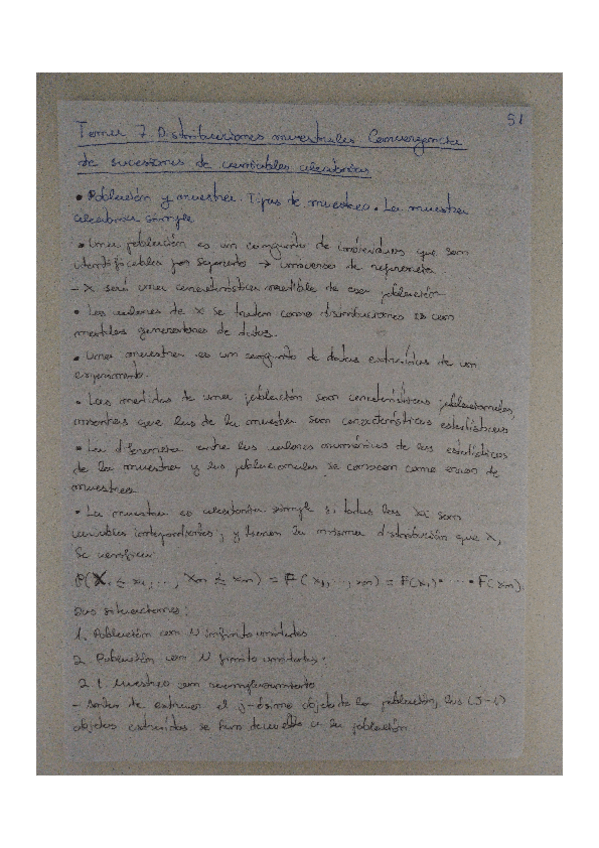 51
Tema 7. Distribuciones muestrales. Convergencia
de sucesiones de variables aleatorias
• Población y muestra. Tipos de muestreo. La muestra
aleatoria simple.
• Una población es un conjunto de individuos que son
identificables por separado → universo de referencia.
- X será una característica medible de esa población.
• Los valores de X se tratan como distribuciones
modelos generadores de datos.
• Una muestra es un conjunto de datos extraídos de un
experimento.
• Las medidas de una población son características poblacionales,
mientras que las de la muestra son características estadísticas
• La diferencia entre los valores numéricos de los estadísticos
de la muestra y los poblacionales se conocen como error de
muestreo
• La muestra es aleatoria simple si todas las Xi son
variables independientes, y tienen la misma distribución que X,
Se verifica:
P(X1 ≤ x1, ..., Xn ≤ xn) = F(x1, ..., xn) = F(x1)· ... ·F(xn).
Dos situaciones:
1. Población con N infinito unidades
2. Población con N finito unidades.
2.1. Muestreo con reemplazamiento
- Antes de extraer el j-ésimo objeto de la población, los (J-1)
objetos extraídos se han devuelto a la población